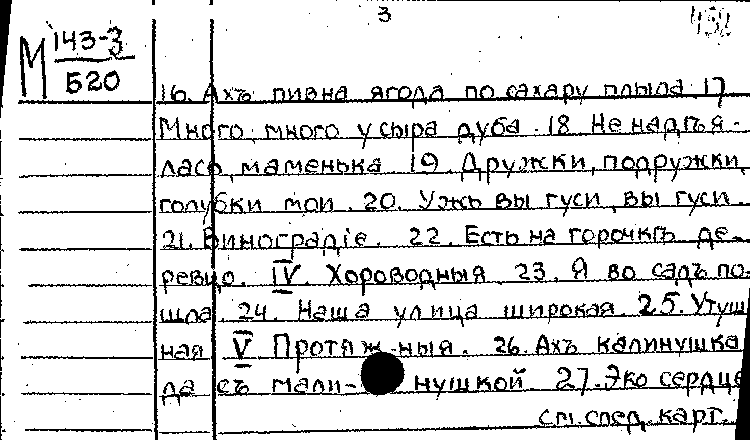 3
452
М 143-3
520
16. Ахъ пивна ягода по сахару плыла 17
Много, много у сыра дуба. 18 Не надѣя-
лась, маменька 19. Дружки, подружки,
голубки мои. 20. Ужъ вы гуси, вы гуси.
21. Виноградіе. 22. Есть на горочкѣ де-
ревцо. IV. Хороводныя. 23. Я во садъ по-
шла. 24. Наша улица широкая. 25. Утуш
ная V Протяжныя. 26. Ахъ калинушка
да съ мали-нушкой. 27. Эко сердце
см. след. карт.